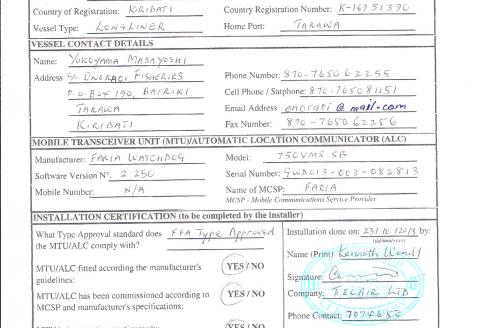 Country of Registration: KIRIBATI Country Registration Number: K-16951390
Vessel Type: LONGLINER Home Port: TARAWA
VESSEL CONTACT DETAILS
Name: YOKOYAMA MASAYOSHI
Address c/- ONORAOI FISHERIES Phone Number: 870-765062255
P.O.BOX 190, BAIRIKI Cell Phone / Satphone: 870-765081151
TARAWA Email Address onoraoi@mail.com
KIRIBATI Fax Number: 870-765062256
MOBILE TRANSCEIVER UNIT (MTU)/AUTOMATIC LOCATION COMMUNICATOR (ALC)
Manufacturer: FARIA WATCHDOG Model: 750VMS SB
Software Version N°. 2.250 Serial Number: GWD013-003-082813
Mobile Number: N/A Name of MCSP: FARIA
MCSP - Mobile Communications Service Provider
INSTALLATION CERTIFICATION (to be completed by the installer)
What Type Approval standard does FFA Type Approved Installation done on: 23/10/2013 by:
the MTU/ALC comply with? (dd/mm/yyyy)
Name (Print) Kenneth Wendt
MTU/ALC fitted according the manufacturer's YES / NO
guidelines: Signature:
MTU/ALC has been commissioned according to YES / NO Company: TELAIR LTD
MCSP and manufacturer's specifications:
Phone Contact: 7074652
YES / NO